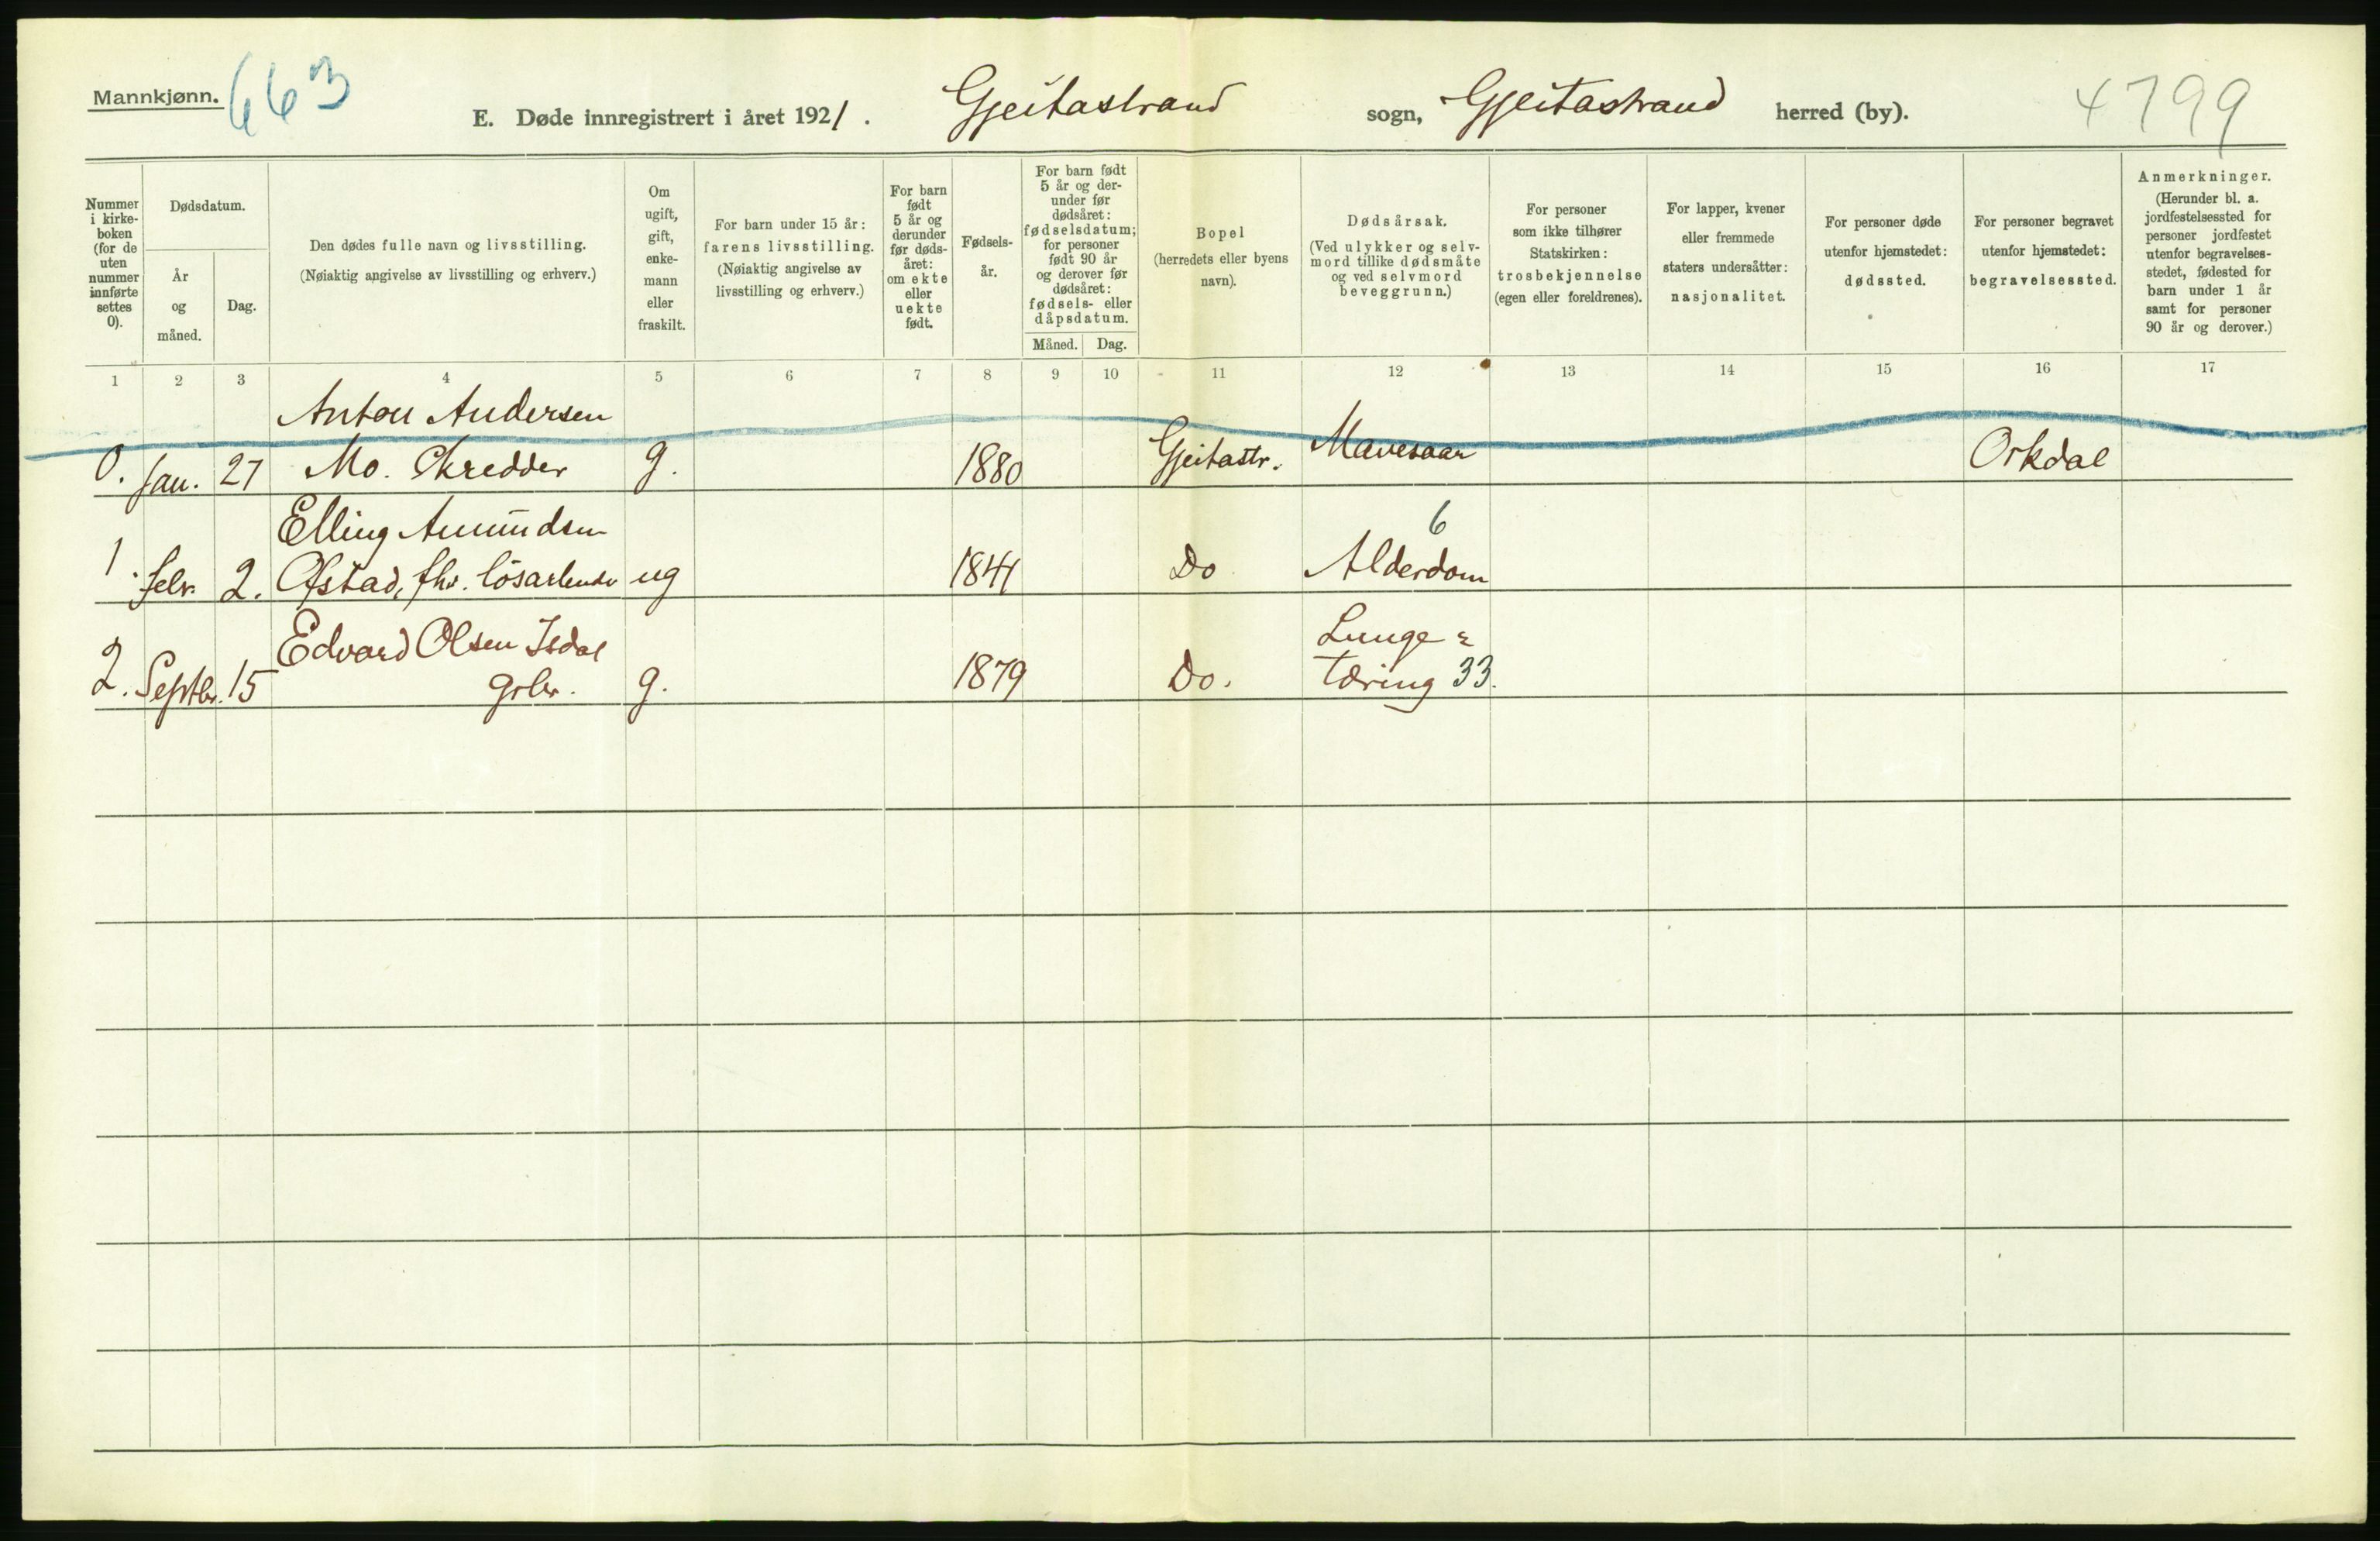 Mannkjønn.
663
E. Døde innregistrert i året 1921. Gjeitastrand sogn, Gjeitastrand herred (by).
4799
Nummer i kirke-boken (for de uten nummer innførte settes 0).
Dødsdatum.
År og måned.
Dag.
Den dødes fulle navn og livsstilling.
(Nøiaktig angivelse av livsstilling og erhverv.)
Om ugift, gift, enke-mann eller fraskilt.
For barn under 15 år: farens livsstilling.
(Nøiaktig angivelse av livsstilling og erhverv.)
For barn født 5 år og derunder før døds-året: om ekte eller uekte født.
Fødsels-år.
For barn født 5 år og der-under før dødsåret: fødselsdatum; for personer født 90 år og derover før dødsåret: fødsels- eller dåpsdatum.
Måned.
Dag.
Bopel
(herredets eller byens navn).
Dødsårsak.
(Ved ulykker og selv-mord tillike dødsmåte og ved selvmord beveggrunn.)
For personer som ikke tilhører Statskirken: trosbekjennelse (egen eller foreldrenes).
For lapper, kvener eller fremmede staters undersåtter: nasjonalitet.
For personer døde utenfor hjemstedet: dødssted.
For personer begravet utenfor hjemstedet: begravelsessted.
Anmerkninger.
(Herunder bl. a. jordfestelsessted for personer jordfestet utenfor begravelses-stedet, fødested for barn under 1 år samt for personer 90 år og derover.)
1 2 3 4 5 6 7 8 9 10 11 12 13 14 15 16 17
Anton Andersen
0. Jan. 27 Mo. Skredder g. 1880 Gjeitastr. Mavesaar Orkdal
Elling Amundsen 6
1. febr. 2. Ofstad, fhv. løsarbeider ug 1841 Do Alderdom
Edvard Olsen Isdal Lunge=
2. Septbr. 15 grbr. g. 1879 Do. tæring 33.